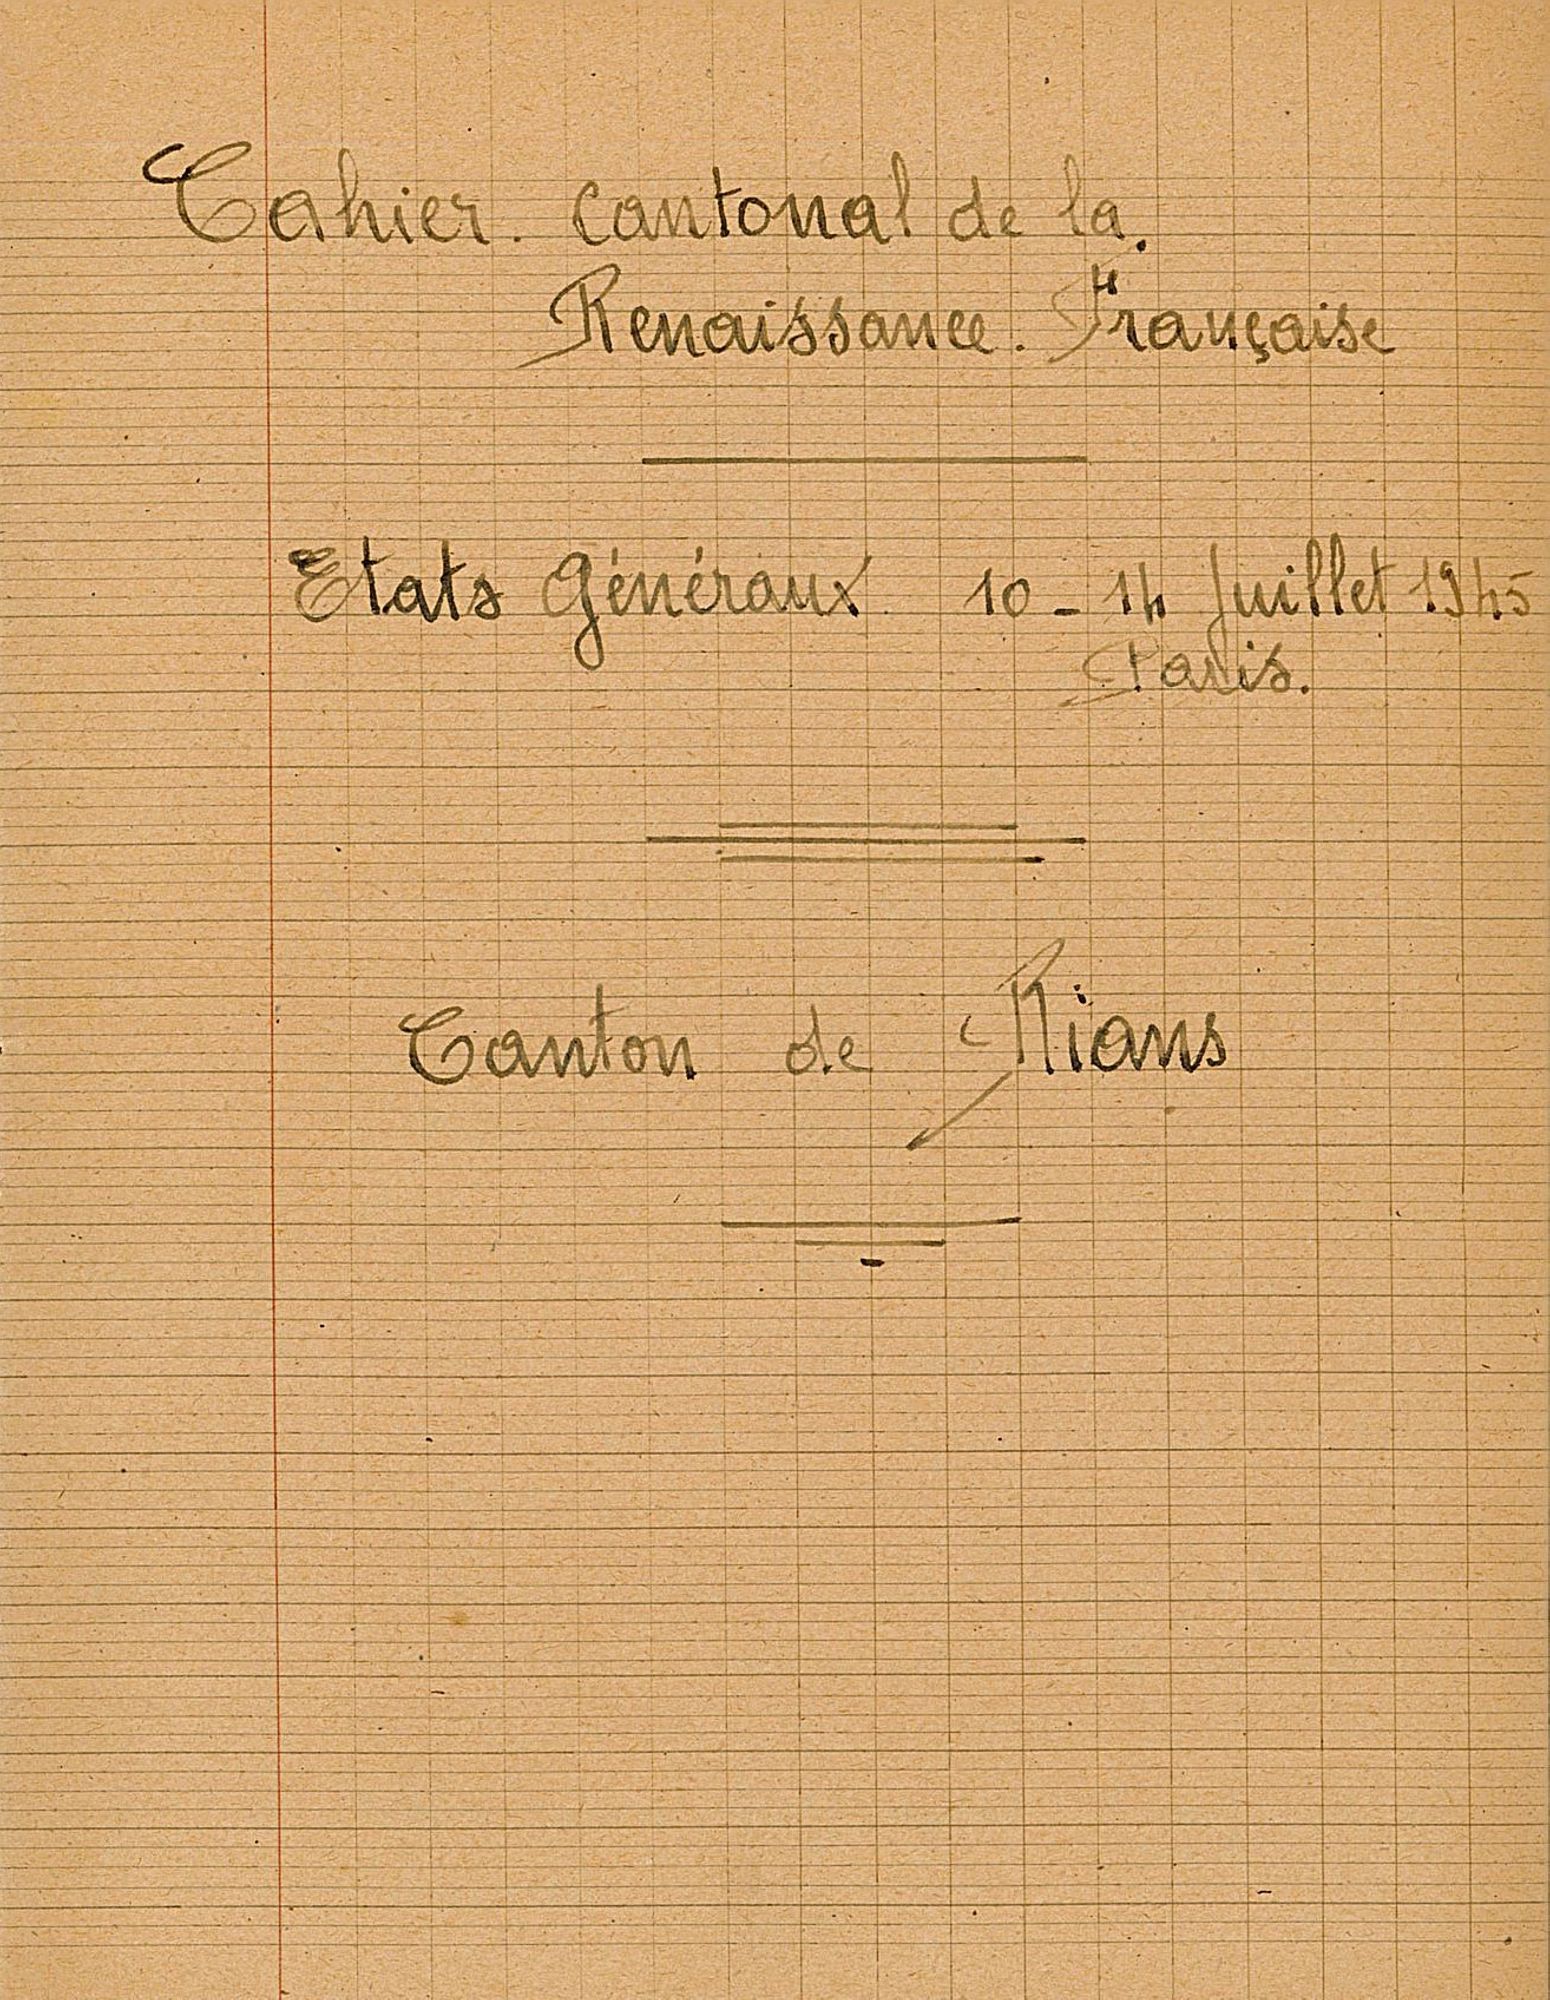 Cahier. Cantonal de la.
Renaissance. Française
Etats Généraux 10 - 14 Juillet 1945
Paris.
Canton de Rians